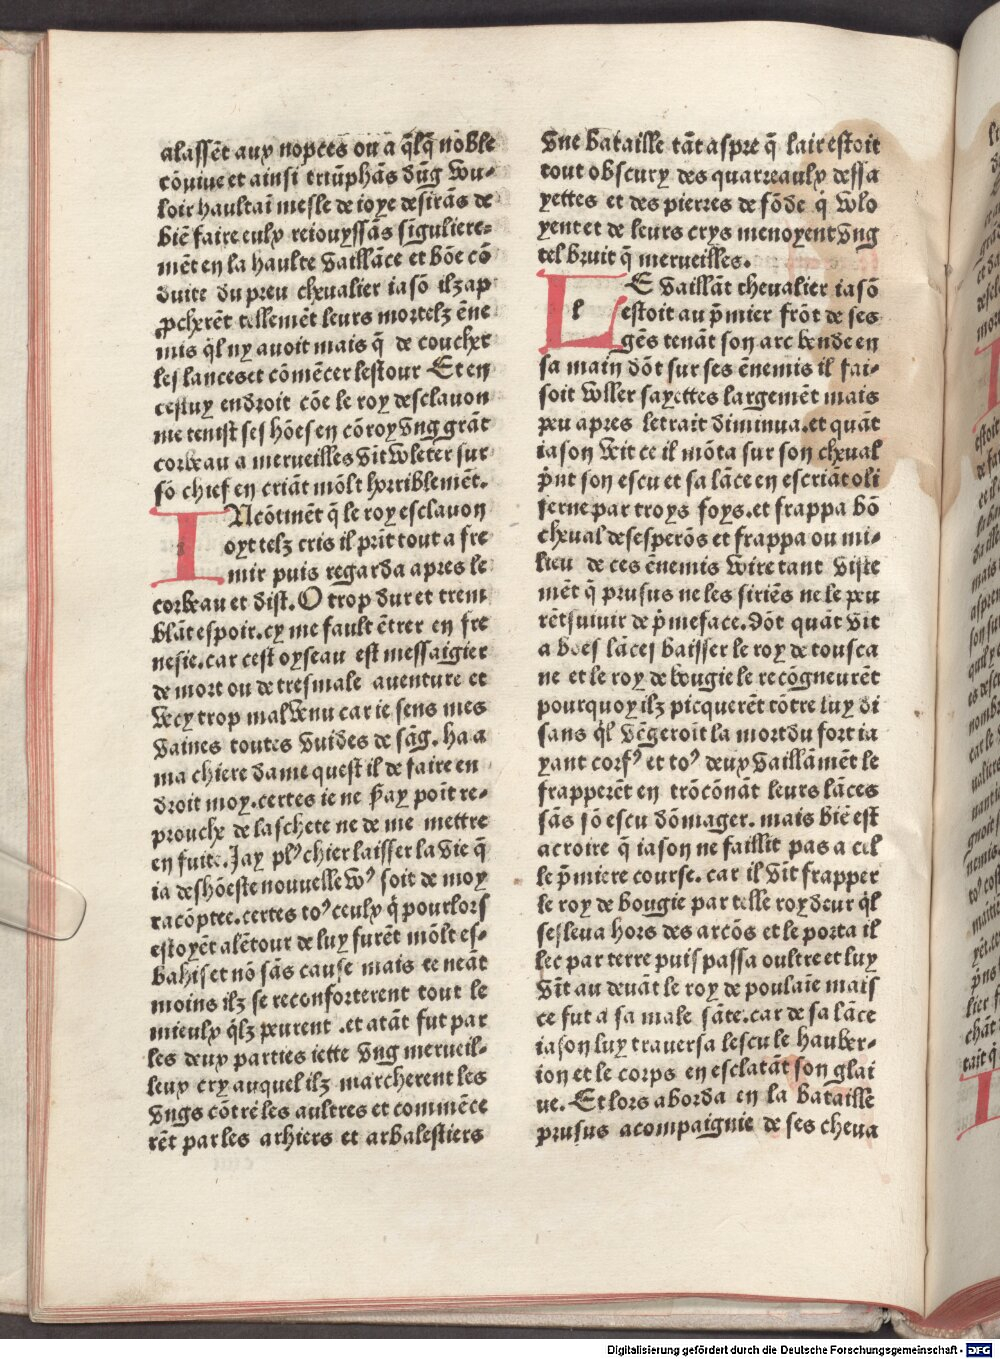 alassēt aux nopces ou a q̄lq̄ nōble
cōuiue et ainsi triūphās dūg vou-
loir haultaī mesle de ioye desirās de
biē faire eulx reiouyssās siguliere-
mēt en la haulte vaillāce et bōe cō
duite du preu cheualier iasō ilz ap
pcherēt tellemēt leurs mortelz ēne
mis q̄l ny auoit mais q̄ de coucher
les lances et cōmēcer lestour Et en
cestuy endroit cōe le roy desclauon
nie tenist ses hōes en cōroy vng grāt
corbeau a merueilles vit voleter sur
sō chief en criāt mōlt horriblemēt.
INcōtinēt q̄ le roy esclauon
oyt telz cris il prīt tout a fre
mir puis regarda apres le
corbeau et dist. O trop dur et trem
blāt espoir. cy me fault ētrer en fre
nesie. car cest oyseau est messaigier
de mort ou de tresmale auenture et
vecy trop mal venu car ie sens mes
vaines toutes vuides de sāg. ha a
ma chiere dame quest il de faire en
droit moy. certes ie ne s̄ay poīt re-
prouche de laschete ne de me mettre
en fuite. Jay pl⁹ chier laisser la vie q̄
ia deshōeste nouuelle vo⁹ soit de moy
racōptee. certes to⁹ ceulx q̄ pour lors
estoyēt alētour de luy furēt mōlt es-
bahis et nō sās cause mais te neāt
moins ilz se reconforterent tout le
mieulx q̄lz peurent .et atāt fut par
les deux parties iette vng merueil-
leux cry auquel ilz marcherent les
vngs cōtre les aultres et commēce
rēt par les arhiers et arbalestiers
vne bataille tāt aspre q̄ lair estoit
tout obscurx des quarreaulx dessa
yettes et des pierres de fōde q̄ volo
yent et de leurs crys menoyent vng
tel bruit q̄ merueilles.
LE vaillāt cheualier iasō
estoit au p̄mier frōt de ses
gēs tenāt son arc bende en
sa main dōt sur ses ēnemis il fai-
soit voller sayettes largemēt mais
peu apres le trait diminua. et quāt
iason veit ce il mōta sur son cheual
p̄nt son escu et sa lāce en escriāt oli
ferne par troys foys. et frappa bō
cheual desesperōs et frappa ou mi-
lieu de ces ēnemis voire tant viste
mēt q̄ prusus ne les siriēs ne le peu
rēt suiuir de p̄me face. dōt quāt vit
a bees lāces baisser le roy de tousca
ne et le roy de bougie le recōgneurēt
pourquoy ilz picquerēt cōtre luy di
sans q̄l vēgeroīt la mort du fort ia
yant corf⁹ et to⁹ deux vaillāmēt le
frapperēt en trōcōnāt leurs lāces
sās sō escu dōmager. mais biē est
a croire q̄ iason ne faillit pas a cel
le p̄miere course. car il vīt frapper
le roy de bougie par telle roydeur q̄l
sesleua hors des arcōs et le porta il
lec par terre puis passa oultre et luy
vīt au deuāt le roy de poulaīe mais
ce fut a sa male sāte. car de sa lāce
iason luy trauersa lescu le hauber-
ion et le corps en esclatāt son glai
ue. Et lors aborda en la bataille
prusus acompaignie de ses cheua
Digitalisierung gefördert durch die Deutsche Forschungsgemeinschaft - DFG